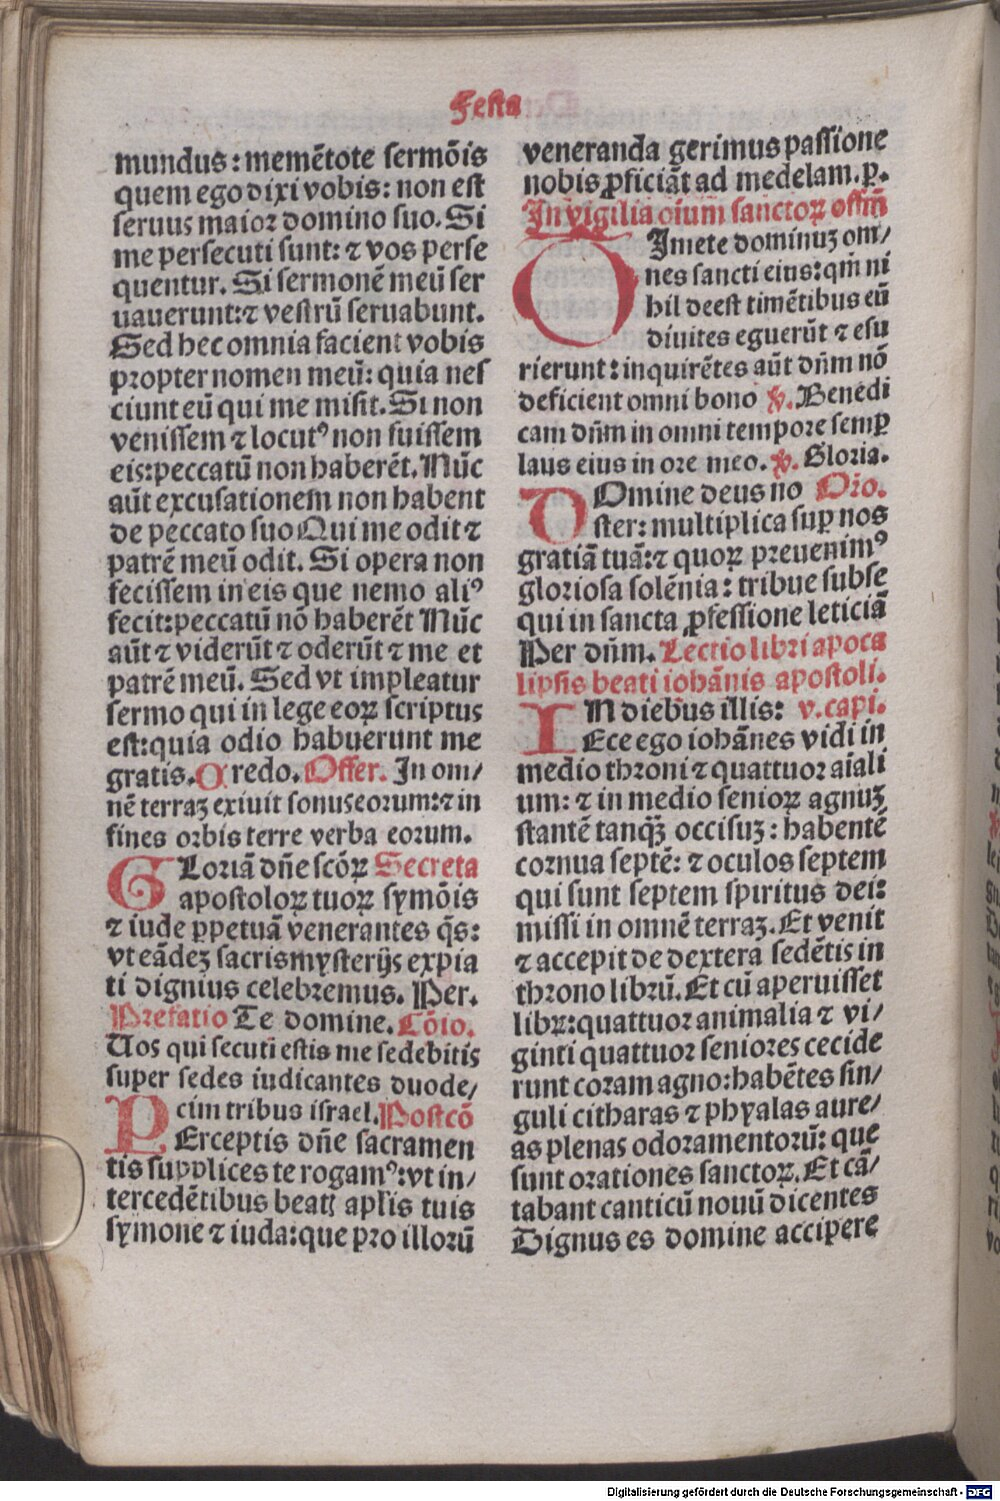 Festa
mundus: memētote sermōis
quem ego dixi vobis: non est
seruus maior domino suo. Si
me persecuti sunt: ⁊ vos perse
quentur. Si sermonē meū ser
uauerunt:⁊ vestrū seruabunt.
Sed hec omnia facient vobis
propter nomen meū: quia nes
ciunt eū qui me misit. Si non
venissem ⁊ locutꝰ non fuissem
eis:peccatū non haberēt. Nūc
aūt excusationem non habent
de peccato suo Qui me odit ⁊
patrē meū odit. Si opera non
fecissem in eis que nemo aliꝰ
fecit:peccatū nō haberēt Nūc
aūt ⁊ viderūt ⁊ oderūt ⁊ me et
patrē meū. Sed vt impleatur
sermo qui in lege eoꝝ scriptus
est:quia odio habuerunt me
gratis. Credo. Offer. In om/
nē terraꝫ exiuit sonus eorum:⁊ in
fines orbis terre verba eorum.
GLoriā dn̄e scōꝝ Secreta
apostoloꝝ tuoꝝ symōis
⁊ iude ꝑpetuā venerantes q̄s:
vt eādeꝫ sacris mysterijs expia
ti dignius celebremus. Per.
Prefatio Te domine. Cōio.
Uos qui secuti estis me sedebitis
super sedes iudicantes duode/
cim tribus israel. Postcō
PErceptis dn̄e sacramen
tis supplices te rogamꝰ:vt in/
tercedētibus beatꝭ apl̄is tuis
symone ⁊ iuda:que pro illorū
veneranda gerimus passione
nobis ꝓficiāt ad medelam. ꝑ.
In vigilia oīum sanctoꝝ offm̄
TImete dominuꝫ om/
nes sancti eius:qm̄ ni
hil deest timētibus eū
diuites eguerūt ⁊ esu
rierunt: inquirētes aūt dn̄m nō
deficient omni bono ℣. Benedi
cam dn̄m in omni tempore semꝑ
laus eius in ore meo. ℣. Gloria.
DOmine deus no Orō.
ster: multiplica suꝑ nos
gratiā tuā:⁊ quoꝝ preuenimꝰ
gloriosa solēnia: tribue subse
qui in sancta ꝓfessione leticiā
Per dn̄m. Lectio libri apoca
lipsis beati iohānis apostoli.
IN diebus illis: v.capi.
Ece ego iohānes vidi in
medio throni ⁊ quattuor aīali
um: ⁊ in medio senioꝝ agnuꝫ
stantē tanqꝫ occisuꝫ: habentē
cornua septē: ⁊ oculos septem
qui sunt septem spiritus dei:
missi in omnē terraꝫ. Et venit
⁊ accepit de dextera sedētis in
throno librū. Et cū aperuisset
libꝝ:quattuor animalia ⁊ vi/
ginti quattuor seniores cecide
runt coram agno:habētes sin/
guli citharas ⁊ phyalas aure/
as plenas odoramentorū: que
sunt orationes sanctoꝝ. Et cā/
tabant canticū nouū dicentes
Dignus es domine accipere
Digitalisierung gefördert durch die Deutsche Forschungsgemeinschaft - DFG